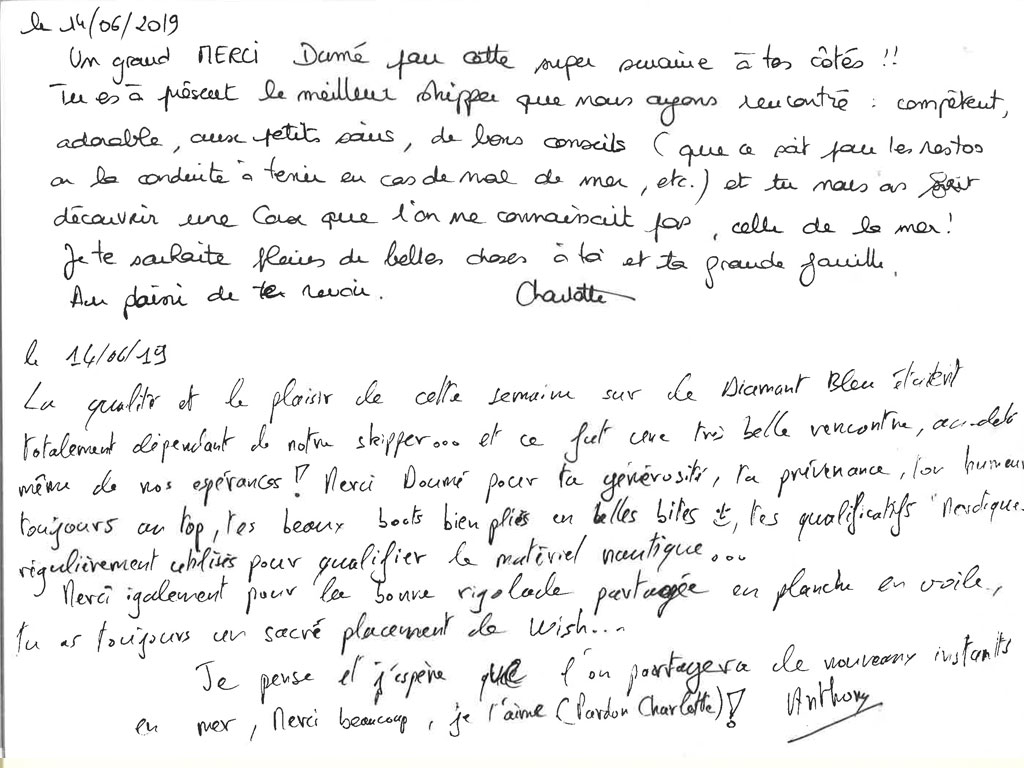 le 14/06/2019
Un grand MERCI Doumé pour cette super semaine à tes côtés !!
Tu es à présent le meilleur skipper que nous ayons rencontré : compétent,
adorable, aux petits soins, de bons conseils (que ce soit pour les restos
ou la conduite à tenir en cas de mal de mer, etc.) et tu nous as fait
découvrir une Corse que l'on ne connaissait pas, celle de la mer!
Je te souhaite pleins de belles choses à toi et ta grande famille.
Au plaisir de te revoir. Charlotte
le 14/06/19
La qualité et le plaisir de cette semaine sur le Diamant Bleu étaient
totalement dépendant de notre skipper... et ce fut une très belle rencontre, au-delà
même de nos espérances! Merci Doumé pour ta générosité, ta prévenance, ton humeur
toujours au top, tes beaux boots bien pliés en belles bites, tes qualificatifs "nordiques
régulièrement utilisés pour qualifier le matériel nautique...
Merci également pour la bonne rigolade partagée en planche en voile,
tu as toujours un sacré placement de Wish...
Je pense et j'espère que l'on partagera de nouveaux instants
en mer, Merci beaucoup, je t'aime (Pardon Charlotte)! Anthony